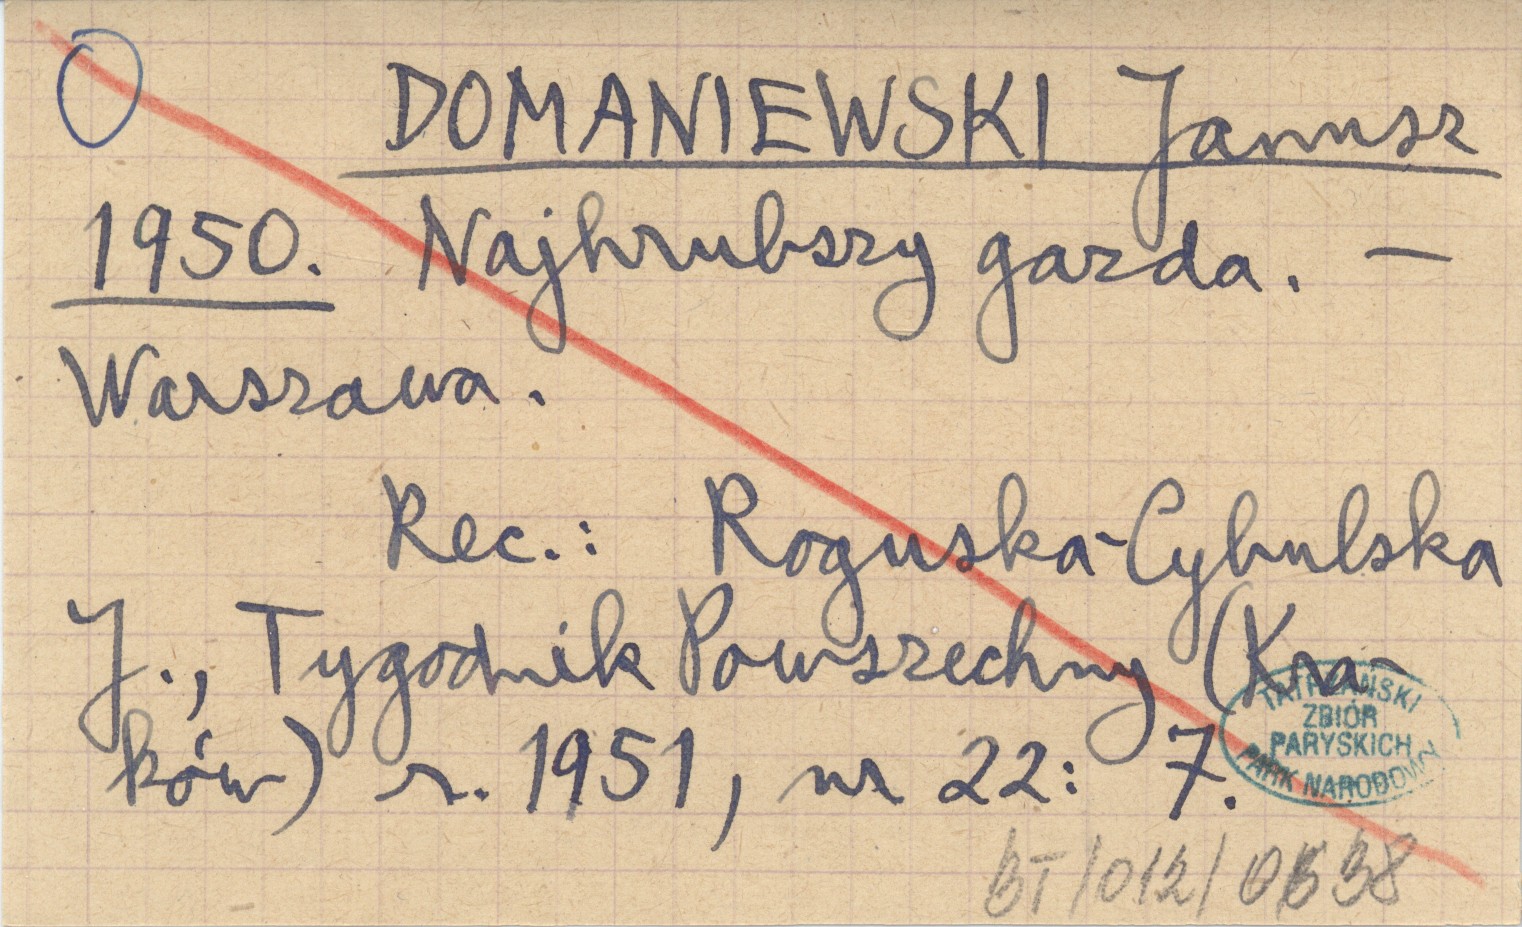 DOMANIEWSKI Janusz
1950. Najhrubszy gazda. —
Warszawa.
Rec.: Roguska-Cybulska
J., Tygodnik Powszechny (Kra-
ków) r. 1951, nr 22: 7.
TATRZAŃSKI
ZBIÓR
PARYSKICH
PARK NARODOWY
BT/012/